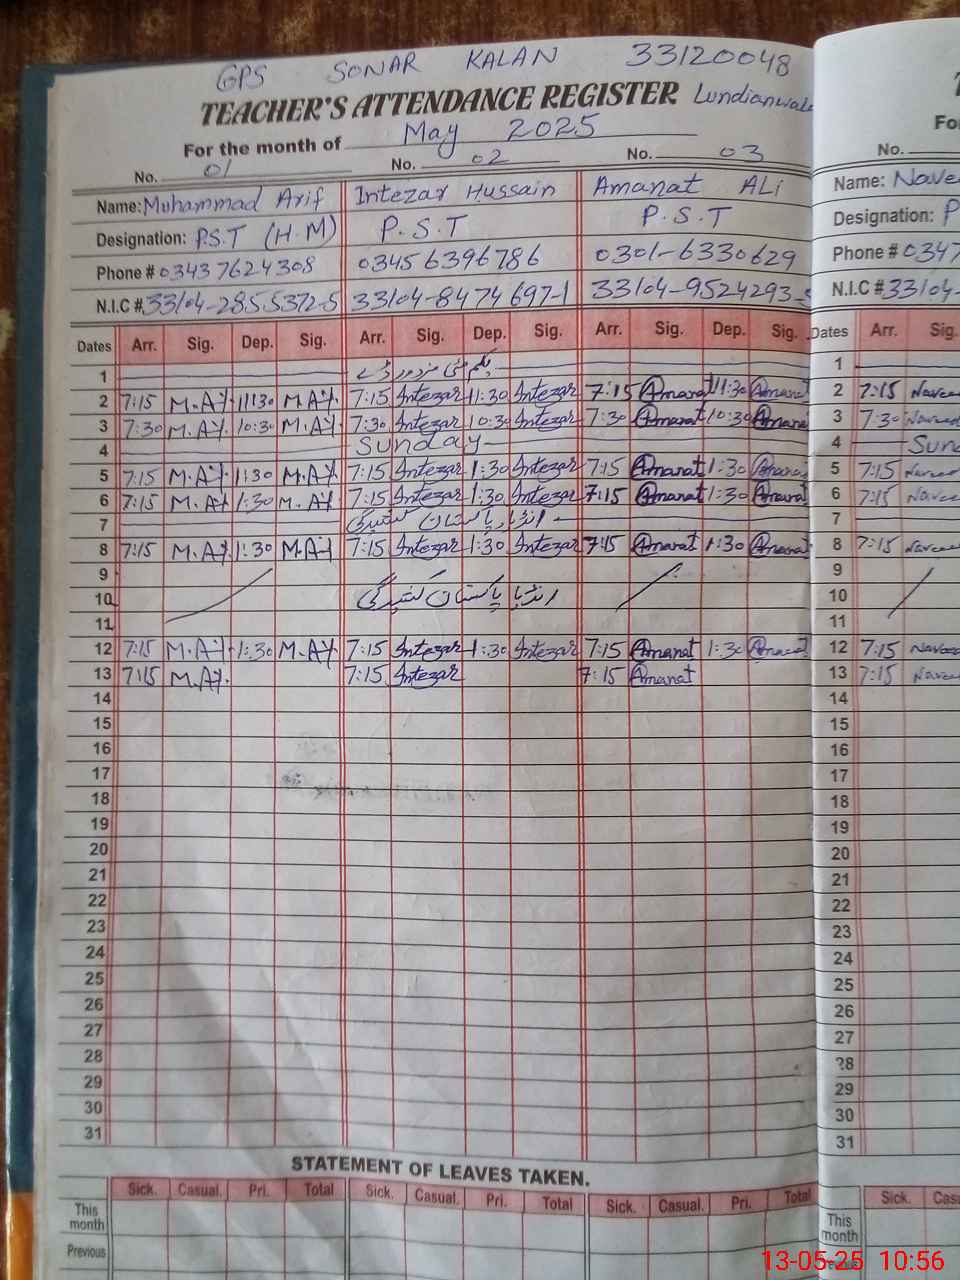 GPS SONAR KALAN 33120048
TEACHER'S ATTENDANCE REGISTER Lundianwala
For the month of May 2025
No. 01 No. 02 No. 03 No.
Name: Muhammad Arif Intezar Hussain Amanat ALi Name: Nave
Designation: P.S.T (H.M) P.S.T P.S.T Designation: P
Phone # 03437624308 03456396786 0301-6330629 Phone # 0347
N.I.C # 33104-2855372-5 33104-8474697-1 33104-9524293- N.I.C # 33104-
Dates Arr. Sig. Dep. Sig. Arr. Sig. Dep. Sig. Arr. Sig. Dep. Sig. Dates Arr. Sig.
1 یکم مئی مزدور ڈے 1
2 7:15 M.Af 11:30 M.Af 7:15 Intezar 11:30 Intezar 7:15 Amanat 11:30 Amanat 2 7:15 Naveed
3 7:30 M.Af 10:30 M.Af 7:30 Intezar 10:30 Intezar 7:30 Amanat 10:30 Amanat 3 7:30 Naveed
4 Sunday 4 Sun
5 7:15 M.Af 1:30 M.Af 7:15 Intezar 1:30 Intezar 7:15 Amanat 1:30 Amanat 5 7:15 Naveed
6 7:15 M.Af 1:30 M.Af 7:15 Intezar 1:30 Intezar 7:15 Amanat 1:30 Amanat 6 7:15 Naveed
7 انڈیا پاکستان کشیدگی 7
8 7:15 M.Af 1:30 M.Af 7:15 Intezar 1:30 Intezar 7:15 Amanat 1:30 Amanat 8 7:15 Naveed
9 9
10 انڈیا پاکستان کشیدگی 10
11 11
12 7:15 M.Af 1:30 M.Af 7:15 Intezar 1:30 Intezar 7:15 Amanat 1:30 Amanat 12 7:15 Naveed
13 7:15 M.Af 7:15 Intezar 7:15 Amanat 13 7:15 Naveed
14 14
15 15
16 16
17 17
18 18
19 19
20 20
21 21
22 22
23 23
24 24
25 25
26 26
27 27
28 28
29 29
30 30
31 31
STATEMENT OF LEAVES TAKEN.
Sick. Casual. Pri. Total Sick. Casual. Pri. Total Sick. Casual. Pri. Total Sick. Cas
This month This month
Previous
13-05-25 10:56